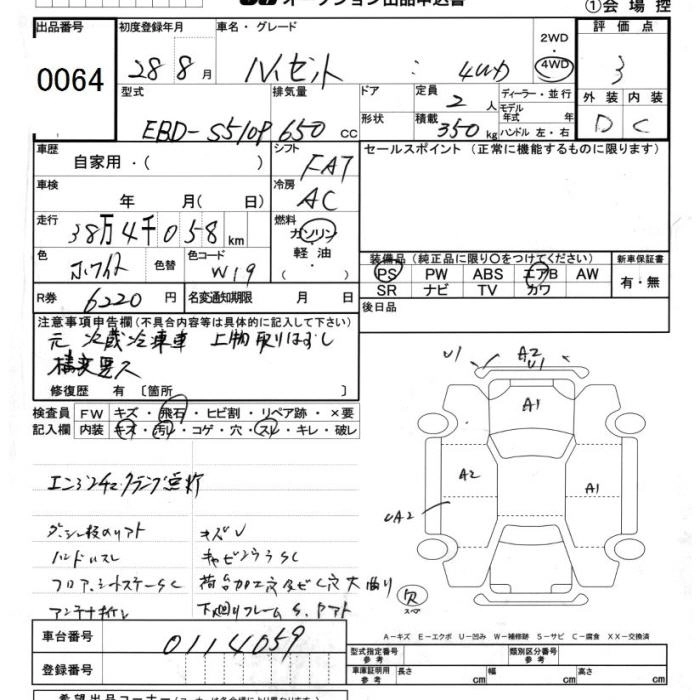 オークション出品申込書
①会場控
出品番号 初度登録年月 車名・グレード 評価点
0064 28年8月 ハイゼット : 4WD 2WD 4WD 3
型式 排気量 ドア 定員 ディーラー・並行 外装 内装
EBD-S510P 650cc 2人 モデル年式 年 D C
形状 積載 350kg ハンドル 左・右
車歴 自家用・( ) シフト FAT セールスポイント (正常に機能するものに限ります)
車検 年 月( 日) 冷房 AC
走行 38万4千058km 燃料 ガソリン 軽油 ( ・ )
色 ホワイト 色替 色コード W19 装備品(純正品に限り○をつけてください) 新車保証書
PS PW ABS エアB AW 有・無
SR ナビ TV カワ
R券 6220円 名変通知期限 月 日 後日品
注意事項申告欄(不具合内容等は具体的に記入して下さい)
元 冷蔵冷凍車 上物取りはずし
修復歴 有 〔箇所 〕
検査員 FW キズ・飛石・ヒビ割・リペア跡・×要
記入欄 内装 キズ・汚れ・コゲ・穴・スレ・キレ・破レ
U1 A2 U1
A1
A2 A1
UA2
エンジンチェックランプ点灯
キズU
ハンドルスレ キャビンウラSC
フロアシートステーSC 荷台加工穴
アンテナ折レ 下廻りフレームS
穴 スペア
A-キズ E-エクボ U-凹み W-補修跡 S-サビ C-腐食 XX-交換済
車台番号 0114059 型式指定番号 参考 類別区分番号 参考
登録番号 車庫証明用 参考 長さ cm 幅 cm 高さ cm
希望出品コーナー